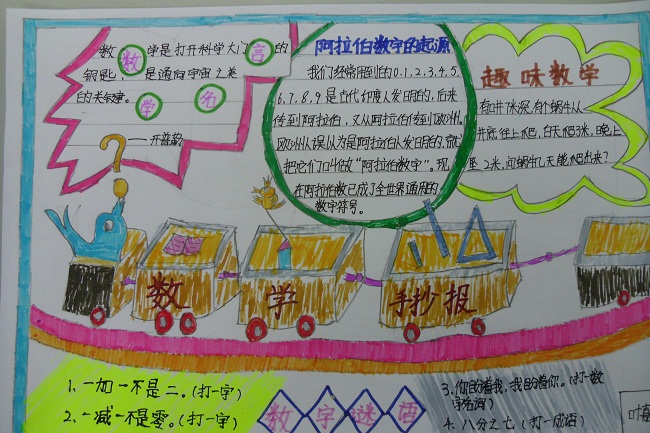 数学是打开科学大门的
钥匙，是通向宇宙之美
的关键。
——开普勒
数
学
名
言
阿拉伯数字的起源
我们经常用到的0.1.2.3.4.5.
6.7.8.9是古代印度人发明的，后来
传到阿拉伯，又从阿拉伯传到欧洲，
欧洲人误以为是阿拉伯人发明的，就
把它们叫做“阿拉伯数字”。现
在阿拉伯数已成了全世界通用的
数字符号。
趣味数学
井往上爬，白天爬3米，晚上
坠2米，问蜗牛几天能爬出来？
数
学
手抄报
1、一加一不是二。(打一字)
2、一减一不是零。(打一字)
数字谜语
3、你盼着我，我盼着你。(打一数
字名词)
4、八分之七(打一成语)